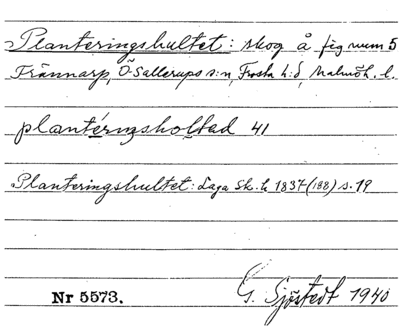 Planteringshultet: skog å fig num 5
Frännarp, Ö. Sallerups s:n, Frosta h:d, Malmöh. l.
plantérıngshọltad 41
Planteringshultet: Laga Sk. h. 1837-(188) s. 19
G. Sjöstedt 1940
Nr 5573.